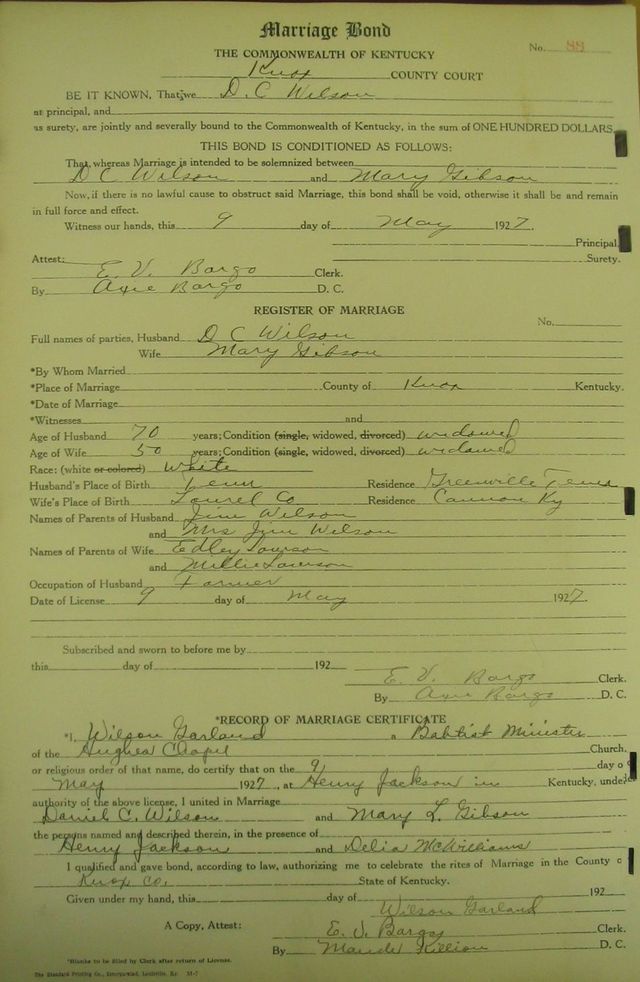 Marriage Bond
No. 88
THE COMMONWEALTH OF KENTUCKY
Knox COUNTY COURT
BE IT KNOWN, That we D. C Wilson
as principal, and
as surety, are jointly and severally bound to the Commonwealth of Kentucky, in the sum of ONE HUNDRED DOLLARS.
THIS BOND IS CONDITIONED AS FOLLOWS:
That, whereas Marriage is intended to be solemnized between
D C Wilson and Mary Gibson
Now, if there is no lawful cause to obstruct said Marriage, this bond shall be void, otherwise it shall be and remain
in full force and effect.
Witness our hands, this 9 day of May 1927.
Principal,
Attest: Surety.
E. V. Bargo Clerk.
By Axie Bargo D. C.
REGISTER OF MARRIAGE
No.
Full names of parties, Husband D C Wilson
Wife Mary Gibson
*By Whom Married
*Place of Marriage County of Knox Kentucky.
*Date of Marriage
*Witnesses and
Age of Husband 70 years; Condition (single, widowed, divorced) widowed
Age of Wife 50 years; Condition (single, widowed, divorced) widowed
Race: (white or colored) White
Husband's Place of Birth Tenn Residence Greenville Tenn
Wife's Place of Birth Laurel Co Residence Cannon Ky
Names of Parents of Husband Jim Wilson
and Mrs Jim Wilson
Names of Parents of Wife Edley Lawson
and Millie Lawson
Occupation of Husband Farmer
Date of License 9 day of May 1927
Subscribed and sworn to before me by
this day of 192
E. V. Bargo Clerk.
By Axie Bargo D. C.
*RECORD OF MARRIAGE CERTIFICATE
*I, Wilson Garland a Babtist Minister
of the Hughes Chapel Church.
or religious order of that name, do certify that on the 9 day o
May 1927, at Henry Jackson in Kentucky, under
authority of the above license, I united in Marriage
Daniel C. Wilson and Mary L. Gibson
the persons named and described therein, in the presence of
Henry Jackson and Delia McWilliams
I qualified and gave bond, according to law, authorizing me to celebrate the rites of Marriage in the County o
Knox Co. State of Kentucky.
Given under my hand, this day of 192
Wilson Garland
A Copy, Attest: E. V. Bargo Clerk.
By Maude Killion D. C.
*Blanks to be filled by Clerk after return of License.
The Standard Printing Co., Incorporated, Louisville, Ky. M-7